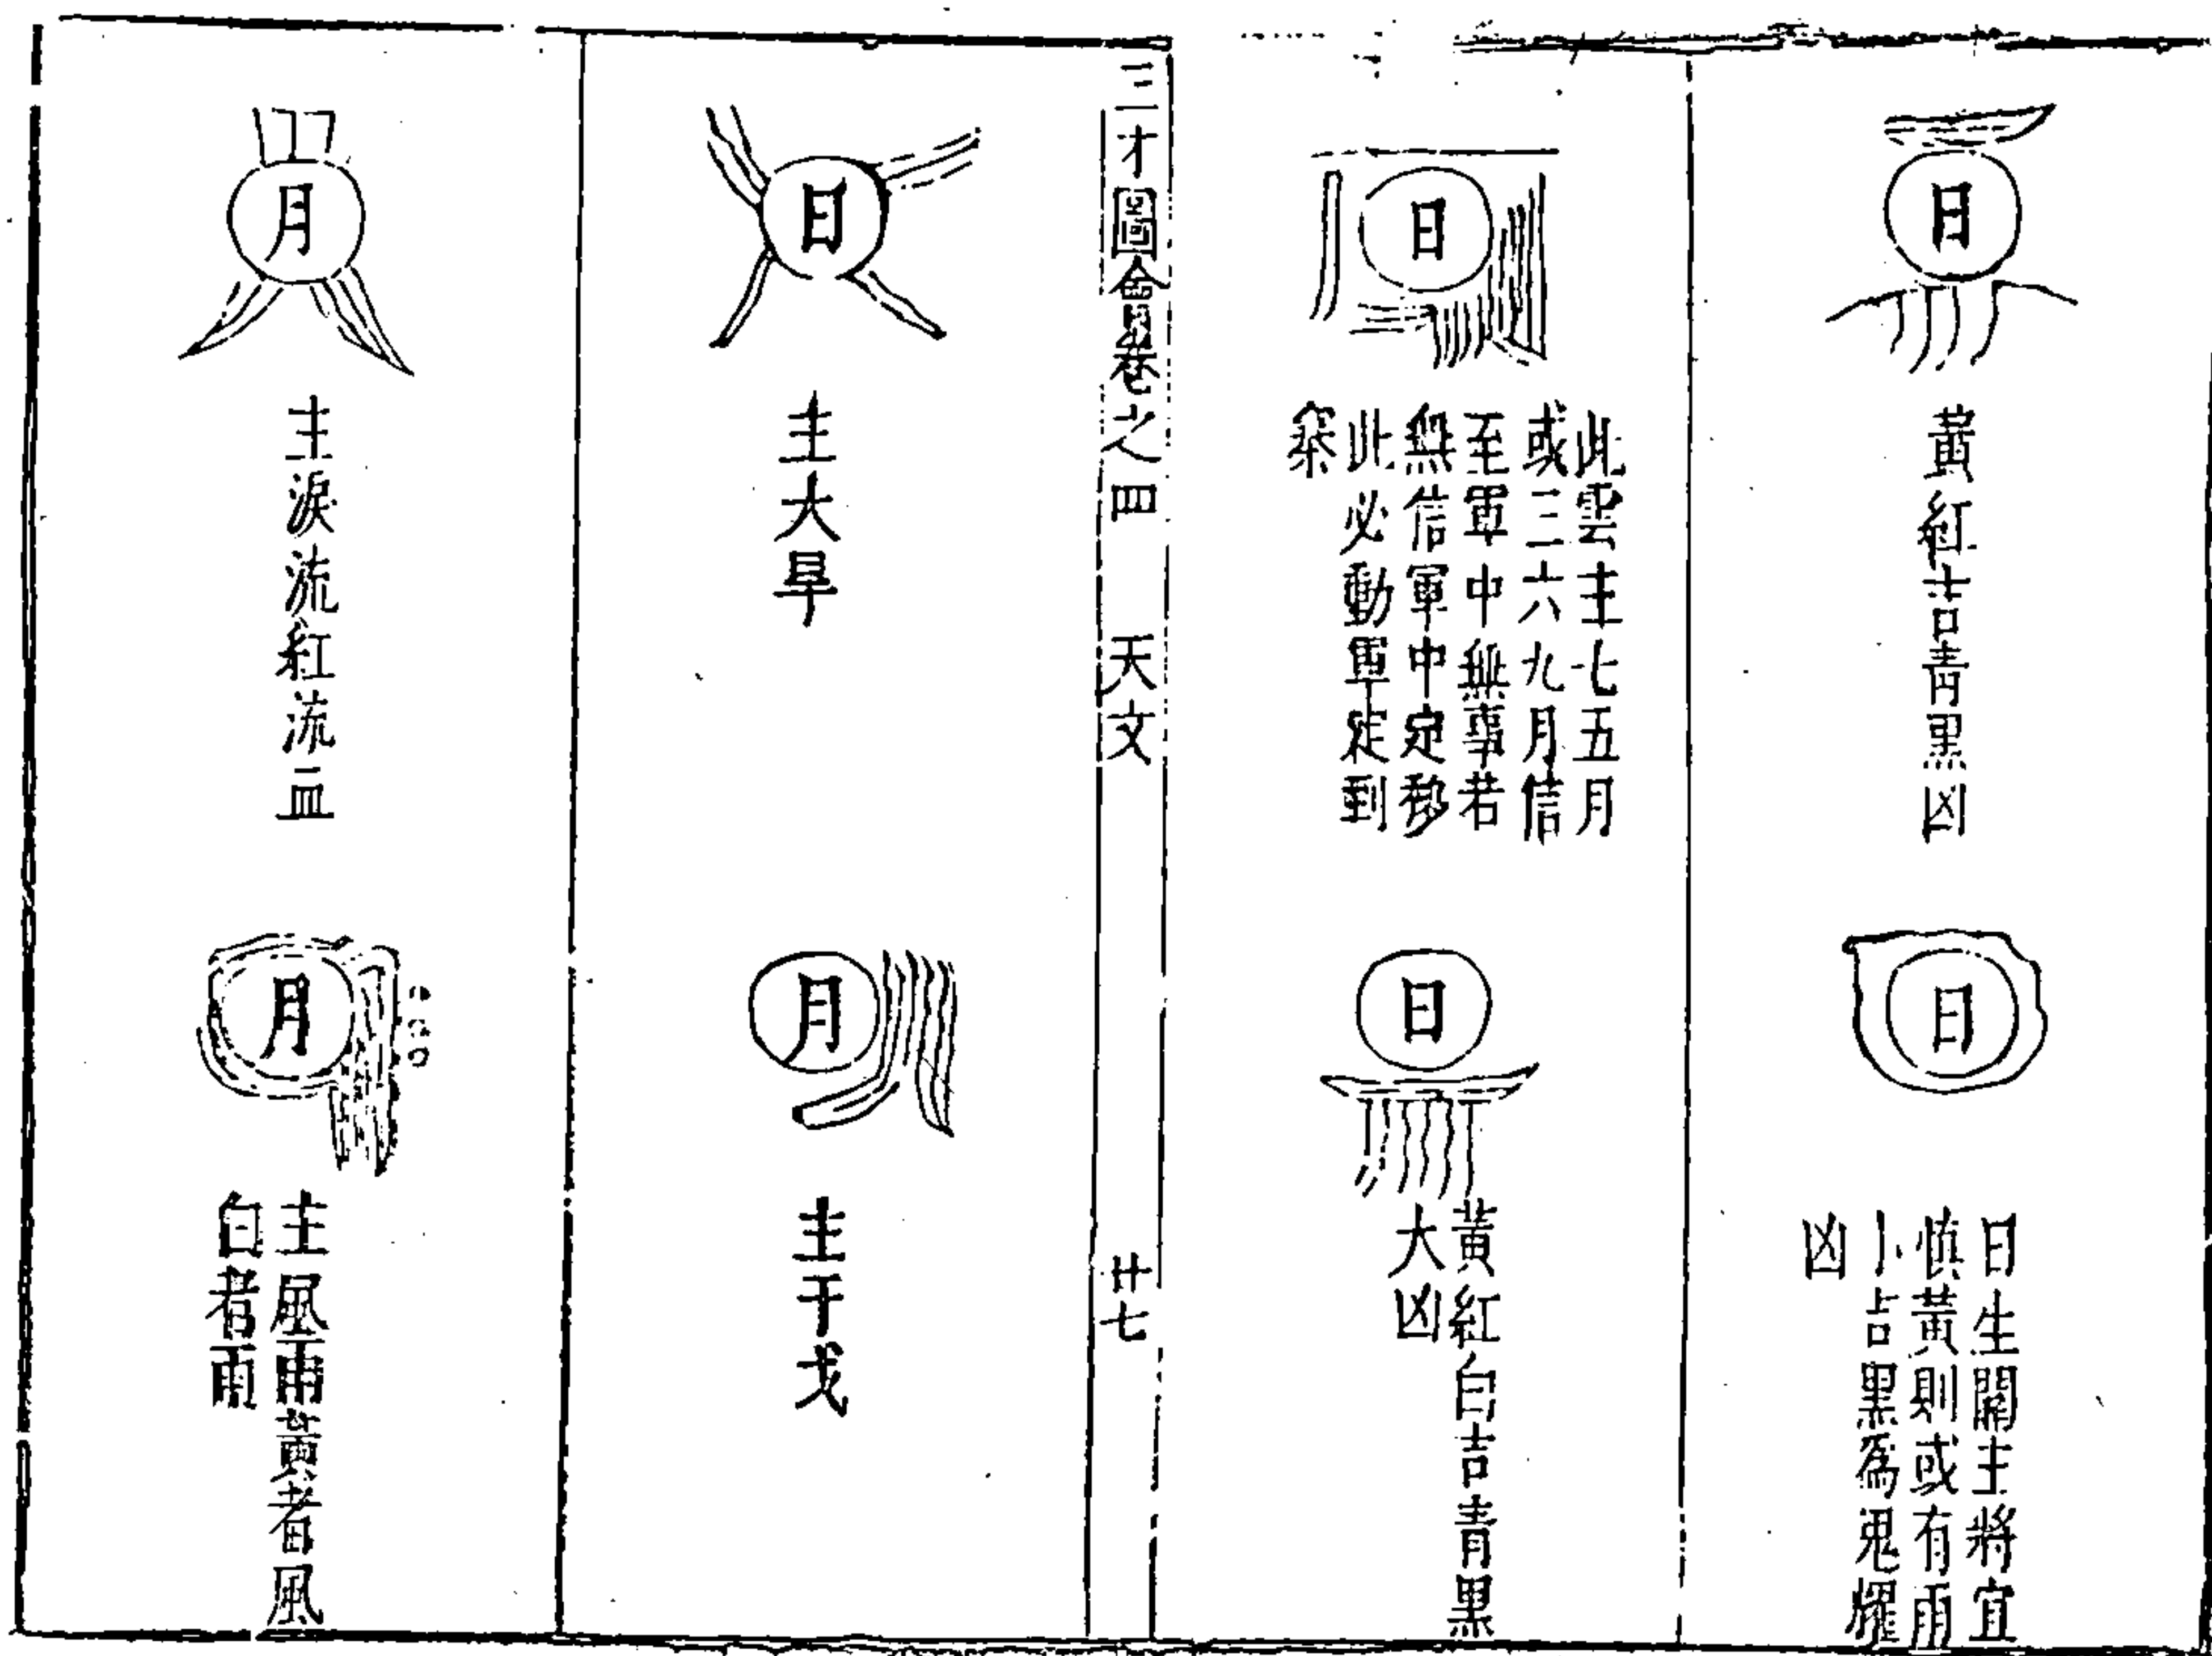 日
黃紅吉青黑凶
日
日生關主將宜
慎黃則或有雨
小吉黑為鬼耀
凶
日
此雲主七五月
或三六九月信
至軍中無事若
無信軍中定移
此必動軍定到
寨
日
黃紅白吉青黑
大凶
三才圖會 卷之四 天文 廿七
日
主大旱
月
主干戈
月
主淚流紅流血
月
主風雨黃者風
白者雨